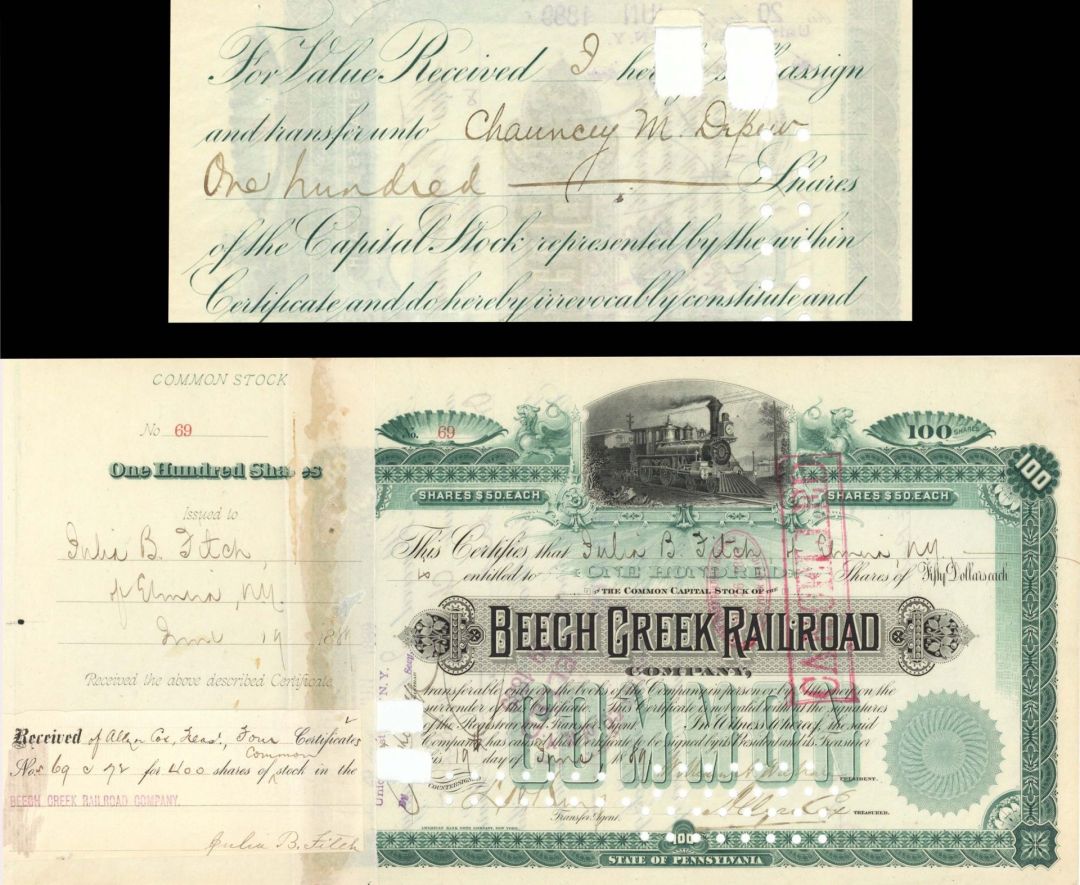 For Value Received I her assign
and transfer unto Chauncey M. Depew
One hundred Shares
of the Capital Stock represented by the within
Certificate and do hereby irrevocably constitute and
COMMON STOCK
No 69
One Hundred Sha es
Issued to
Julia B. Fitch
of Elmira, N.Y.
June 19 18
Received the above described Certificate
Received of Allyn Cox, Treas., Four Certificates
Nos 69 @ 72 for 400 shares of Common stock in the
BEECH CREEK RAILROAD COMPANY.
Julia B. Fitch
No. 69
100 SHARES
100
SHARES $50. EACH
SHARES $50. EACH
This Certifies that Julia B. Fitch of Elmira N.Y.
is entitled to ONE HUNDRED Shares of Fifty Dollars each
OF THE COMMON CAPITAL STOCK OF THE
BEECH CREEK RAILROAD
COMPANY,
transferable only on the books of the Company in person or by Attorney on the
surrender of this Certificate. This Certificate is not valid without the signatures
of the Registrar and Transfer Agent. In Witness whereof, the said
Company has caused this Certificate to be signed by its President and its Treasurer
this 19th day of June 18
COMMON
CANCELLED
PRESIDENT.
COUNTERSIGNED
Transfer Agent.
Allyn Cox TREASURER.
AMERICAN BANK NOTE COMPANY, NEW YORK.
100
STATE OF PENNSYLVANIA